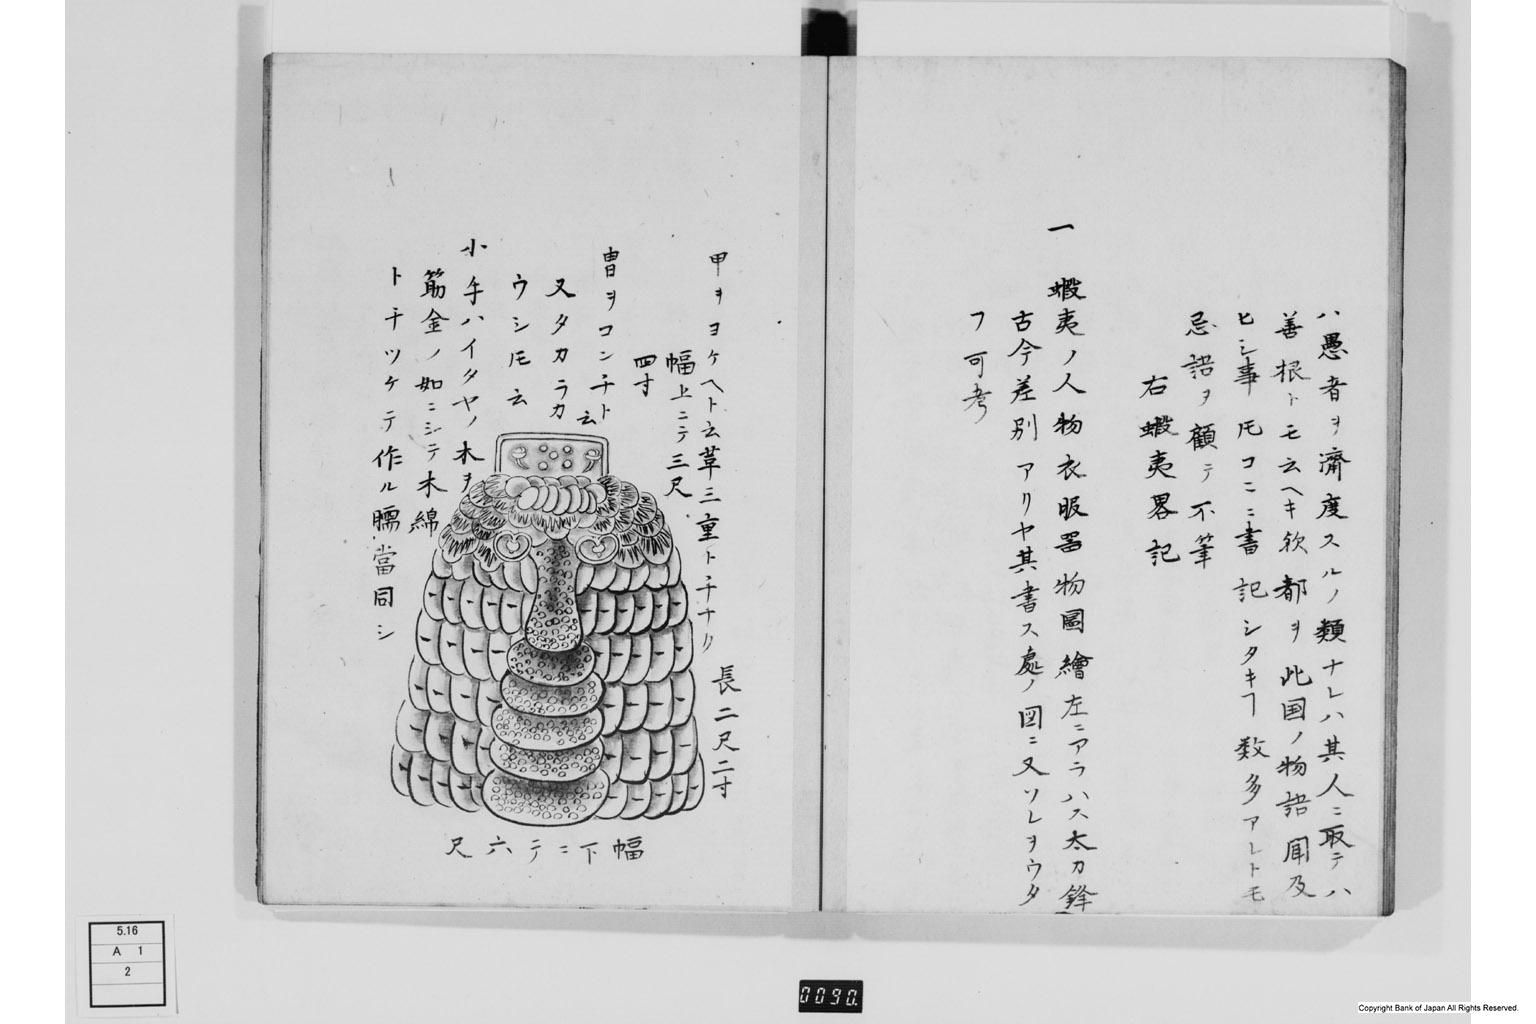 ハ愚者ヲ濟度スルノ類ナレハ其人ニ取テハ
善根トモ云ヘキ欤都ヲ此国ノ物語聞及
ヒシ事𪜈コヽニ書記シタキヿ数多アレトモ
忌諱ヲ顧テ不筆
右蝦夷畧記
一 蝦夷ノ人物衣服器物圖繪左ニアラハス太刀鋒
古今差別アリヤ其書ス處ノ図ニ又ソレヲウタ
フ可考
甲ヲヨケヘト云革三重トチナリ 長二尺二寸
幅上ニテ三尺
四寸
冑ヲコンチト云
又タカラカ
ウシ𪜈云
小手ハイタヤノ木ヲ
筋金ノ如ニシテ木綿
トチツケテ作ル臑當同シ
幅下ニテ六尺
5.16
A 1
2
0090.
Copyright Bank of Japan All Rights Reserved.